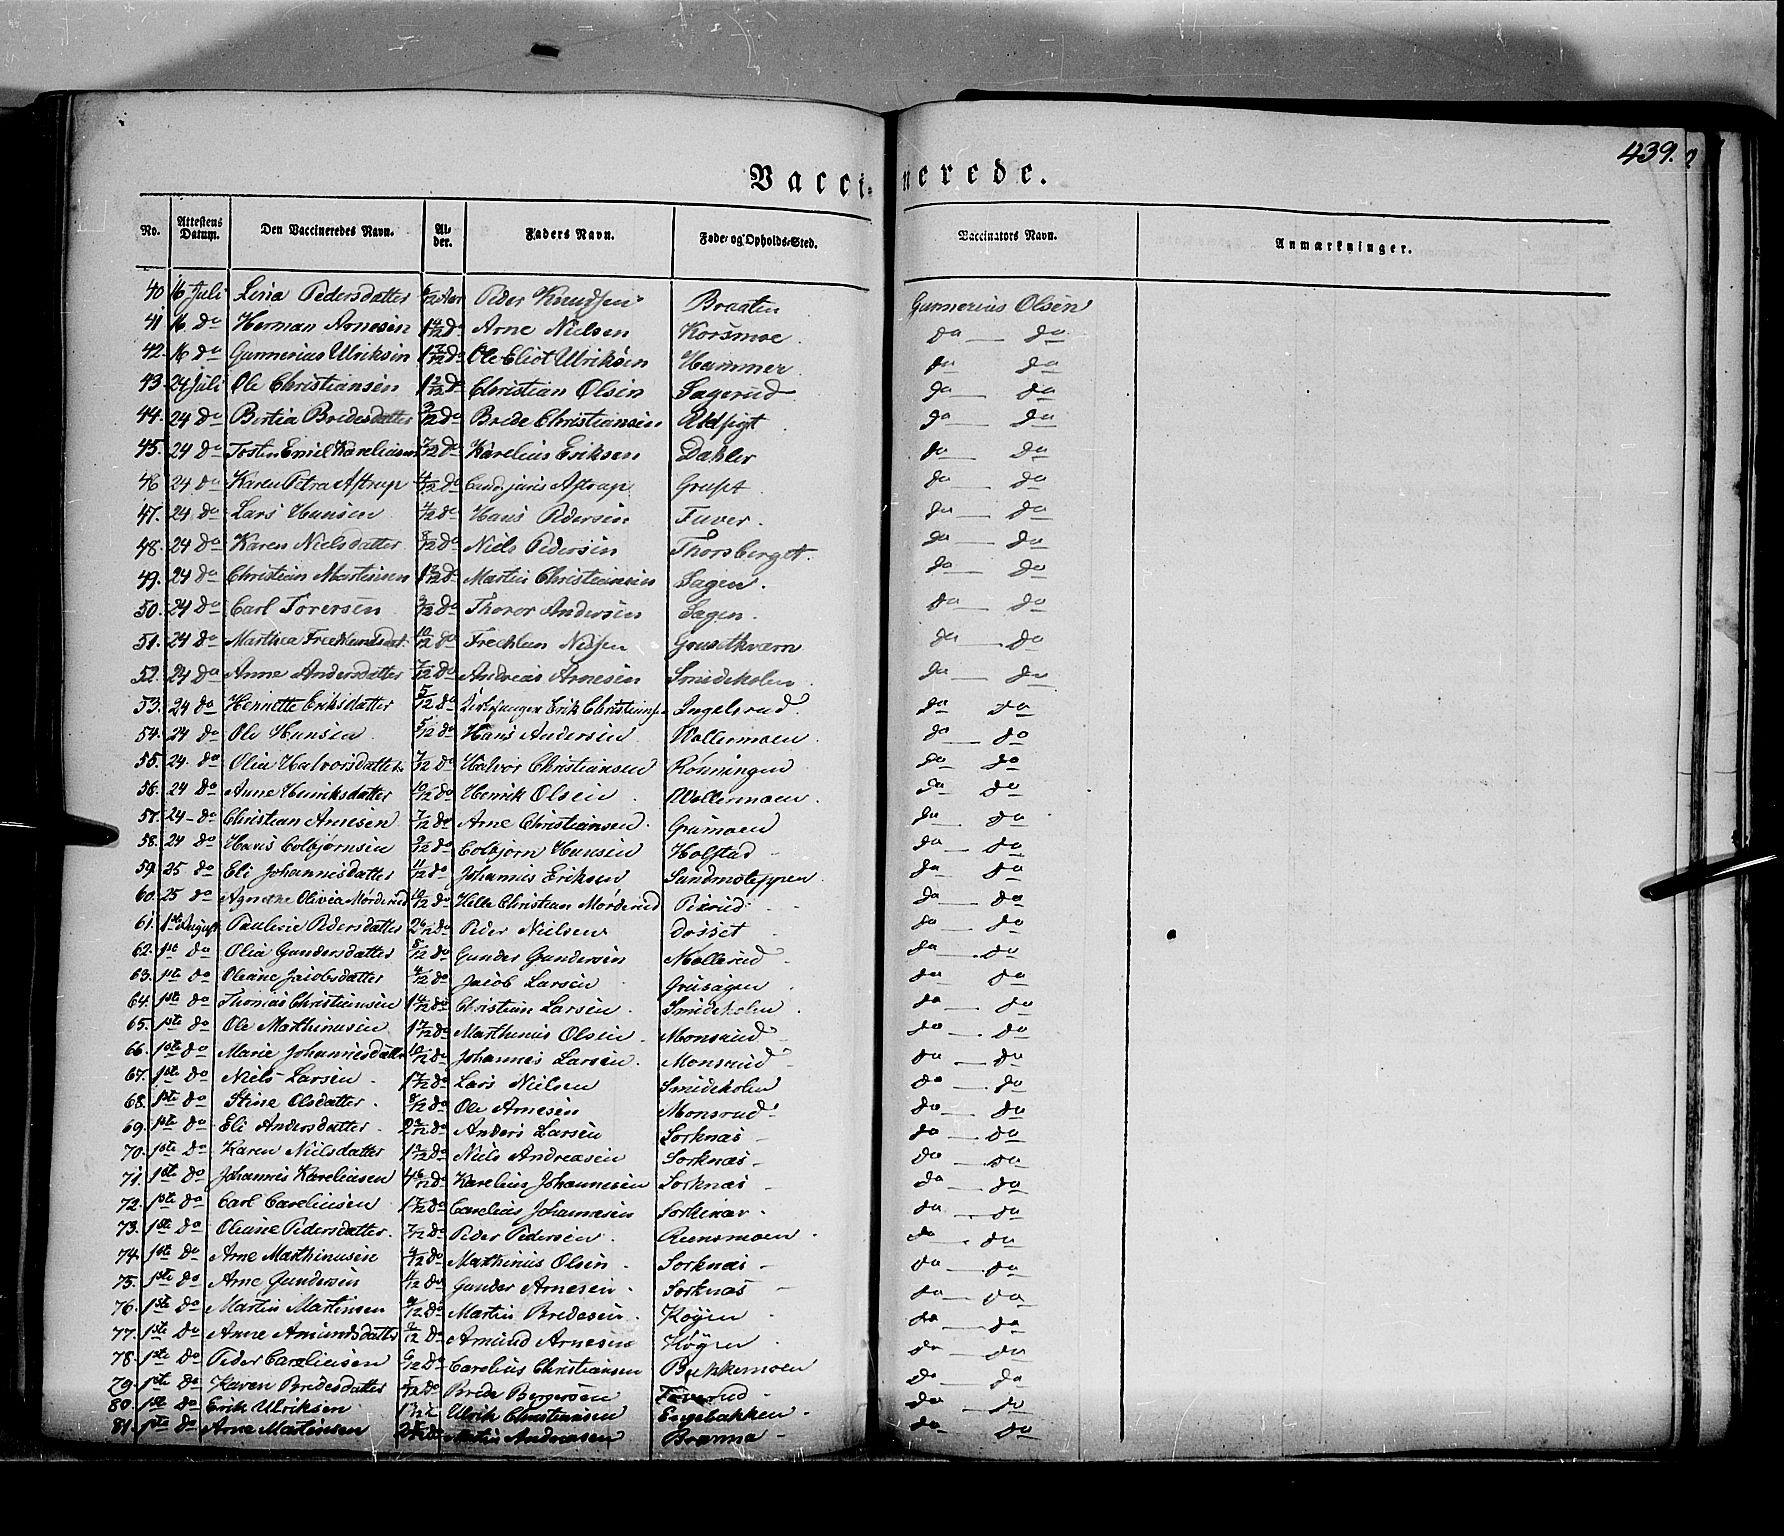 439.
Vacci- nerede.
No. Attestens Datum. Den Vaccineredes Navn. Al- der. Faders Navn. Føde- og Opholds-Sted. Vaccinators Navn. Anmærkninger.
40 16 Juli Pedersdatter Peder Knudsen Braaten Gunnerius Olsen
41 16 do Herman Arnesen do Arne Nielsen Korsmoe do do
42. 16 do Gunnerius Ulriksen do Ole Eliot Ulriksen Hammer do do
43. 24 Juli Ole Christiansen Christian Olsen Sagerud do do
44. 24 do Bertia Bredesdatter do Brede Christiansen Udsigt do do
45. 24 do Emil Kareliusen do Karelius Eriksen Dahler do do
46 24 do Karen Petra Astrup do Astrup Gruset do do
47. 24 do Lars Hansen do Hans Pedersen Fuver. do do
48. 24 do Karen Nielsdatter 8/12 do Niels Pedersen Thorsberget. do do
49. 24 do Christian Martinsen do Martin Christiansen Sagen. do do
50. 24 do Carl Torersen 9/12 do Thorer Andersen Sagen. do do
51. 24 do Marthea 10/12 do Grusetkværn do do
52. 24 do Anne Andersdatter 7/12 do Andreas Arnesen Smidekolen do do
53. 24 do Henriette Eriksdatter 5/12 do Erik Ingelsrud. do do
54. 24 do Ole Hansen 5/12 do Hans Andersen Wallermoen. do do
55. 24. do Olia Halvorsdatter 7/12 do Halvor Christiansen Rönningen do do
56. 24 do Anne Henriksdatter 10/12 do Henrik Olsen Wallermoen. do do
57. 24 do Christian Arnesen 7/12 do Arne Christiansen. Grümoen do do
58. 24 do Hans Colbjørnsen 9/12 do Colbjørn Hansen Holstad do do
59. 25 do Eli Johannesdatter 11/12 do Johannes Eriksen Sandmoteppen. do do
60. 25 do Agnethe Olivia Mörderud 10/12 do Helle Christian Mörderud do do
61. 1ste August Pauline Pedersdatter do Peder Nielsen Dosset do do
62. 1ste do Olia Gundersdatter 8/12 do Gunder Gundersen Møllerud do do
63. 1ste do Oleane Jacobsdatter do Jacob Larsen Grüsagen do do
64. 1ste do Thomas Christiansen do Christian Larsen. Smidekolen do do
65. 1ste do Ole Marthinusen do Marthinus Olsen Monsrud do do
66. 1ste do Marie Johannesdatter 10/12 do Johannes Larsen. Monsrud do do
67. 1ste do Niels Larsen. do Lars Nielsen Smidekolen do do
68. 1ste do Stine Olsdatter. 8/12 do Ole Arnesen Monsrud do do
69. 1ste do Eli Andersdatter. do Anders Larsen Sorknæs do do
70. 1ste do Karen Nielsdatter do Niels Andreasen Sorknæs do do
71. 1ste do Johannes Kareliusen do Karelius Johannesen Sorknæs do do
72. 1ste do Carl Careliusen do Carelius Johannesen do do
73. 1ste do Oleane Pedersdatter. 7/12 do Peder Pedersen. Reensmoen. do do
74. 1ste do Arne Marthinusen do Marthinus Olsen Sorknæs do do
75. 1ste do Arne Gundersen do Gunder Arnesen Sorknæs do do
76. 1ste do Martin Martinsen do Martin Bredesen. Køyen do do
77. 1ste do Anne Amundsdatter do Amund Arnesen Køyen do do
78. 1ste do Peder Careliusen do Carelius Christiansen Bekkemoen do do
79. 1ste do Karen Bredesdatter do Brede Bergersen do do
80. 1ste do Erik Ulriksen Ulrik Christiansen Engebakken. do do
81. 1ste do Arne Martinsen do Martin Andreasen Brænna do do